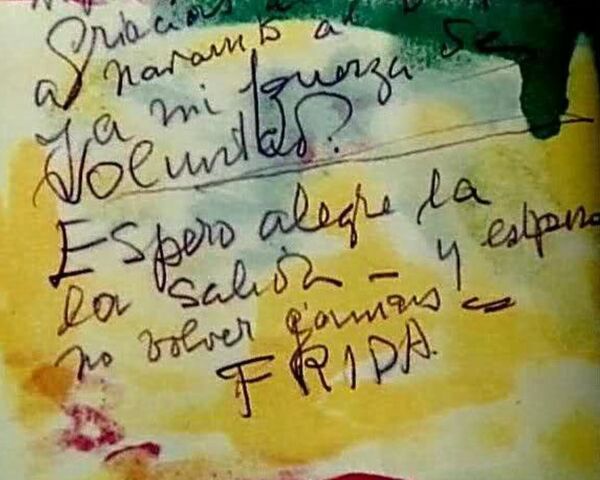 Gracias al
a Navarro al
y a mi fuerza de
Voluntad.
Espero alegre la
la salida – y espero
no volver jamás –
FRIDA.